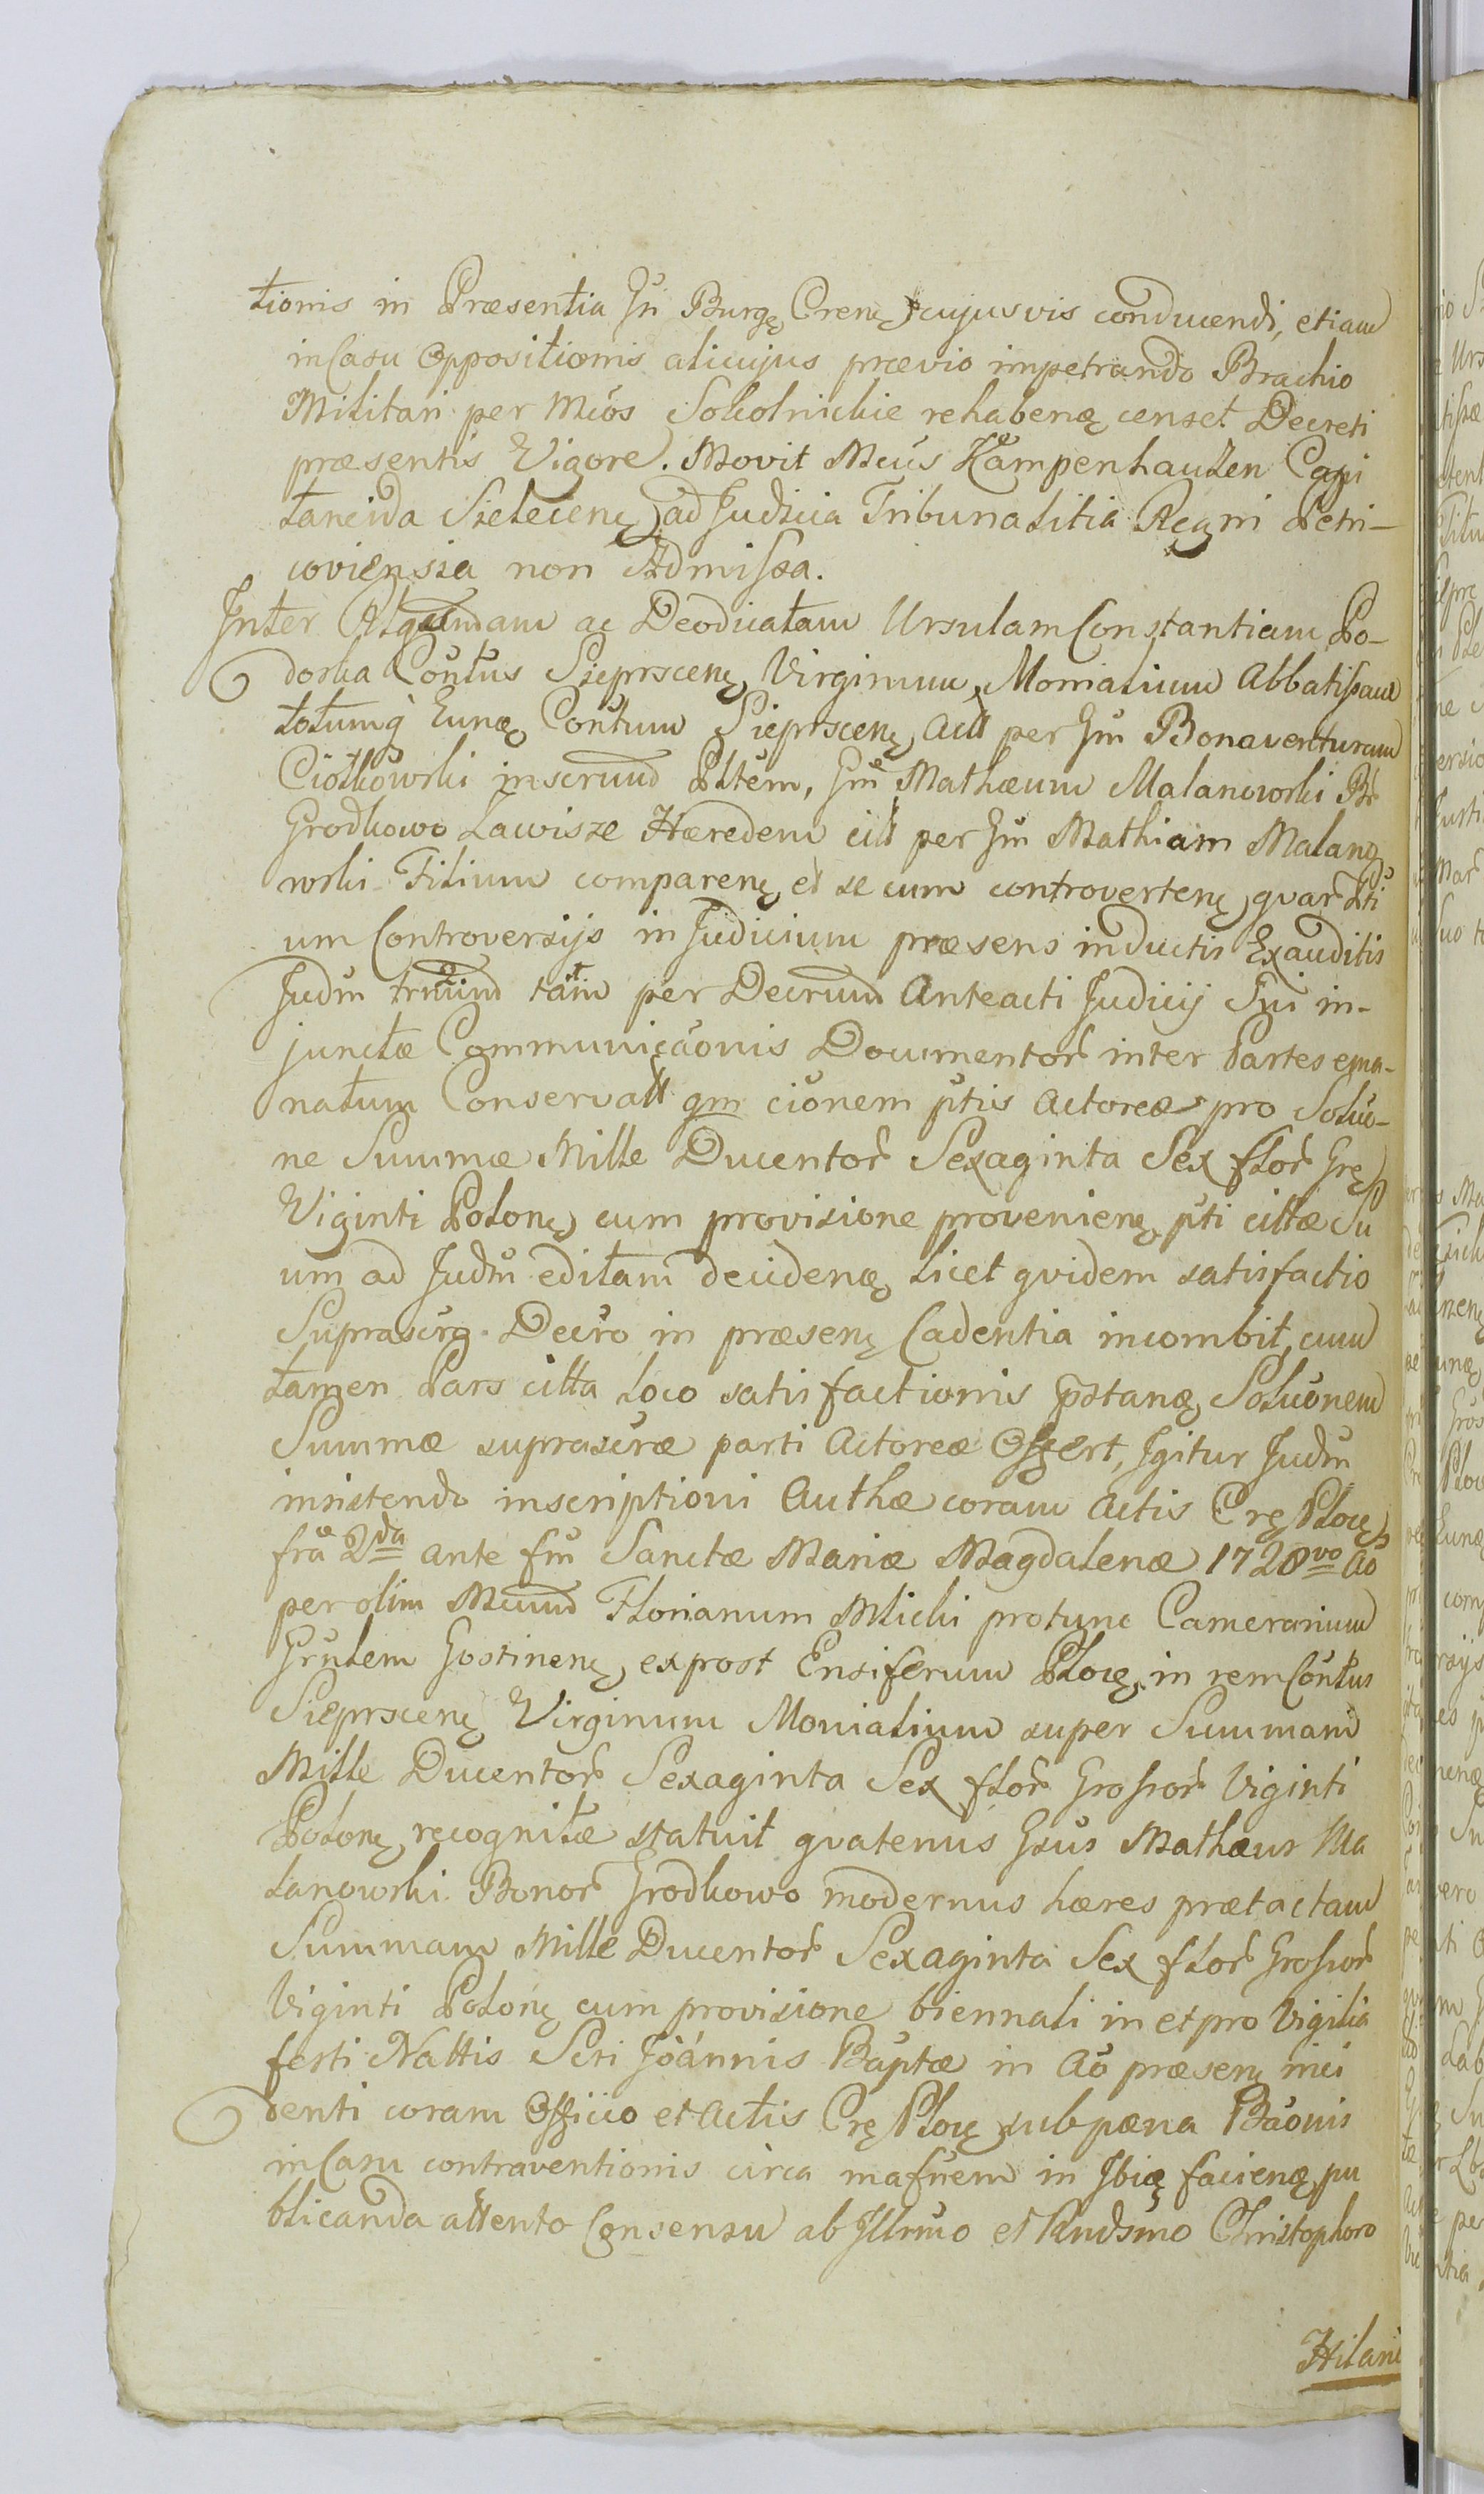 tionis in Præsentia Gń Burgę Crenę cujusvis conducendi, etiam
in Casu Oppositionis alicujus prævio impetrando Brachio
Militari per Mcos Sokolnickie rehabenę censet Decreti
præsentis Vigore. Movit Mcus Kampenhauzen Capi
taneida Stetecenę ad Judicia Tribunalitia Regni Petri-
coviensia non Admissa.
Inter ac Deodicatam Ursulam Constantiam Po-
doska Contus Sieprscenę Virginum Monialium Abbatissam
totumq Eunę Contum Sieprscenę act per Gm Bonaventuram
Ciołkowski inscrum Pltem, Gm Mathæum Malanowski Br
Grodkowo Lawisze Hæredem citt per Gm Mathiam Malano
wski Filium comparenę et secum controvertenę, quar Pti
um Controversijs in Judicium præsens inductis Exauditis
Judm trmind tam per Decrum Anteacti Judicij Sui in-
junctæ Communicaonis Documentor inter Partes ema-
natum Conservatt qm cionem ptis Actoreæ pro Soluo-
ne Summæ Mille Ducentor Sexaginta Sex flor Grę
Viginti Polonę cum provisione provenienę pti cittæ Su
um ad Judm editam decidenę licet quidem satisfactio
Suprascrę Decro in præsenę Cadentia incombit, cum
tamen Pars citta loco satisfactionis pstanę Soluonem
Summæ suprascræ parti Actoreæ Offert, Igitur Judm
insistendo inscriptioni Authæ coram Actis Crę Plocę
fra 2da ante fm Sanctæ Mariæ Magdalenæ 1728vo Ao
per olim Mcum Florianum Mlicki protunc Camerarium
Grulem Gostinenę, expost Ensiferum Plocę, in rem Contus
Sieprscenę Virginum Monialium super Summam
Mille Ducentor Sexaginta Sex flor Grossor Viginti
Polonę recognitæ statuit quatenus Gsus Mathæus Ma
lanowski Bonor Grodkowo modernus hæres prætactam
Summam Mille Ducentor Sexaginta Sex flor Grossor
Viginti Polonę cum provisione biennali in et pro Vigilia
festi Nattis Scti Joannis Baptæ in Ao præsenę inci
denti coram Officio et Actis Crę Plocę sub pæna Baonis
in Casu contraventionis circa mafnem in Ibię facienę pu
blicanda attento Consensu ab Illrmo et Rndsmo Christophoro
Hilari